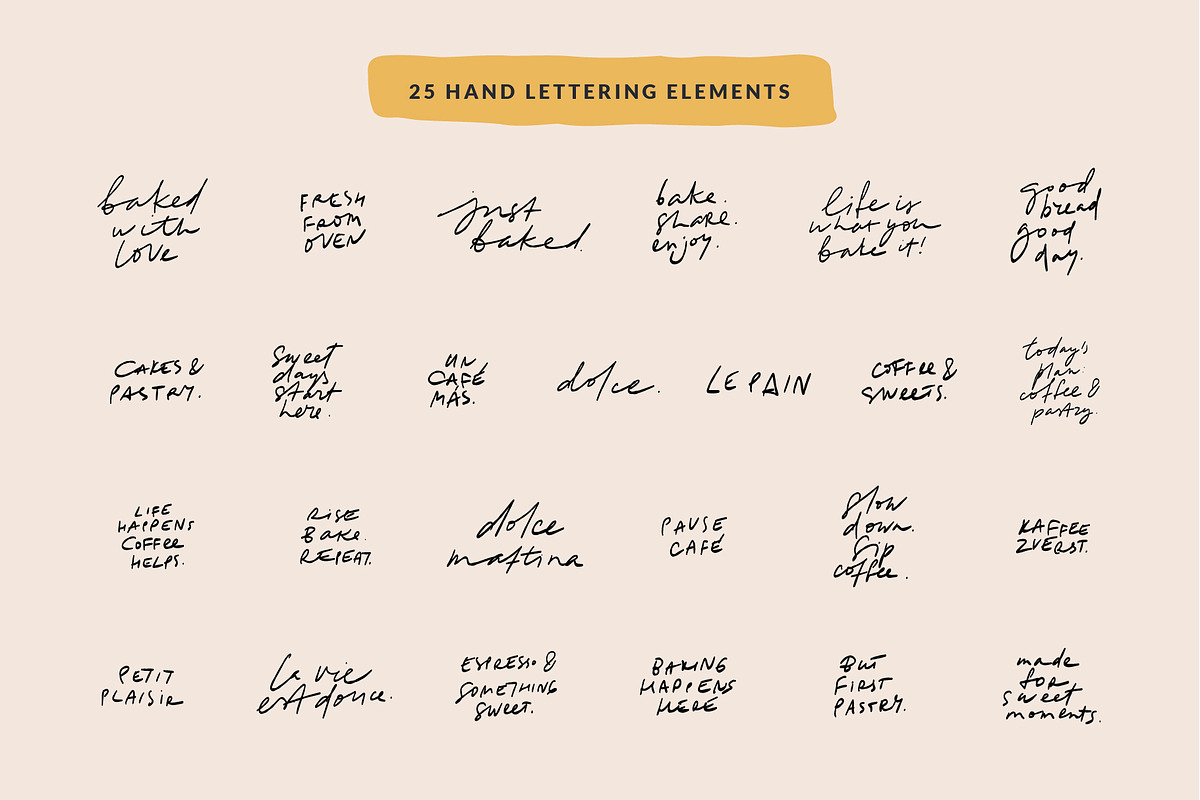 25 HAND LETTERING ELEMENTS
baked
with
love
FRESH
FROM
OVEN
just
baked.
bake.
share.
enjoy.
life is
what you
bake it!
good
bread
good
day.
CAKES &
PASTRY.
Sweet
days
start
here.
UN
CAFÉ
MÁS.
dolce.
LE PAIN
COFFEE &
SWEETS.
today's
plan:
coffee &
pastry.
LIFE
HAPPENS
COFFEE
HELPS.
RISE
BAKE.
REPEAT.
dolce
mattina
PAUSE
CAFÉ
slow
down.
Sip
coffee.
KAFFEE
ZUERST.
PETIT
PLAISIR
la vie
est douce.
ESPRESSO &
SOMETHING
SWEET.
BAKING
HAPPENS
HERE
BUT
FIRST
PASTRY.
made
for
sweet
moments.